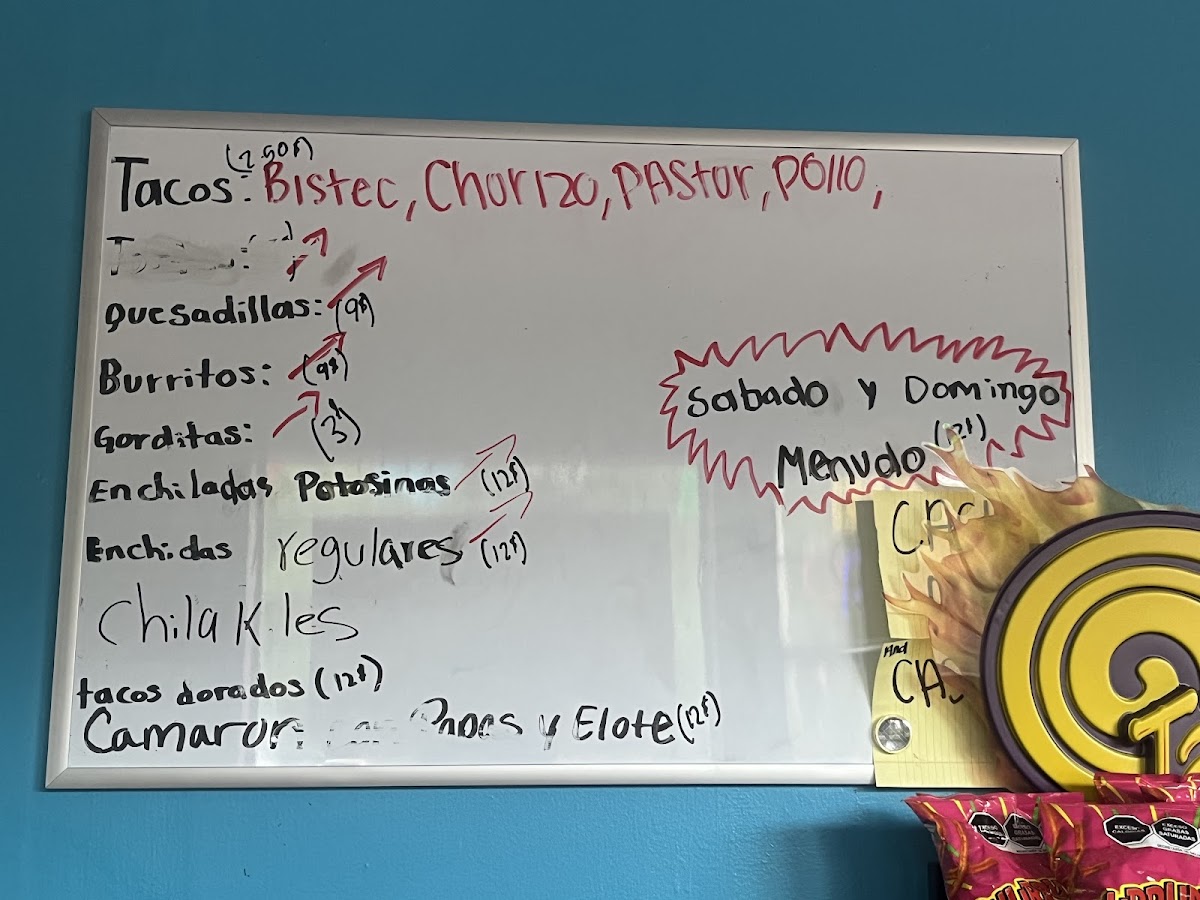 Tacos: (2.50$) Bistec, Chorizo, PAStor, Pollo,
Quesadillas: (9$)
Burritos: (9$)
Gorditas: (3$)
Enchiladas Potosinas (12$)
Enchidas regulares (12$)
Chilakiles
tacos dorados (12$)
Camaron y Elote (12$)
Sabado y Domingo
Menudo
And
EXCESO CALORÍAS
EXCESO GRASAS SATURADAS